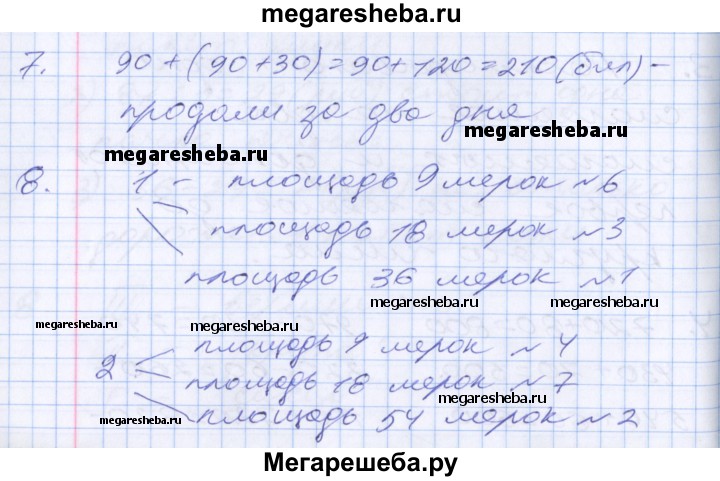 megaresheba.ru
7. 90 + (90+30) = 90 + 120 = 210 (бил) -
продали за два дня
megaresheba.ru
megaresheba.ru
8. 1 - площадь 9 мерок ~ 6
площадь 18 мерок ~ 3
площадь 36 мерок ~ 1
megaresheba.ru megaresheba.ru
megaresheba.ru megaresheba.ru
площадь 9 мерок ~ 4
2 площадь 18 мерок ~ 7
площадь 54 мерок ~ 2
megaresheba.ru megaresheba.ru
Мегарешеба.ру